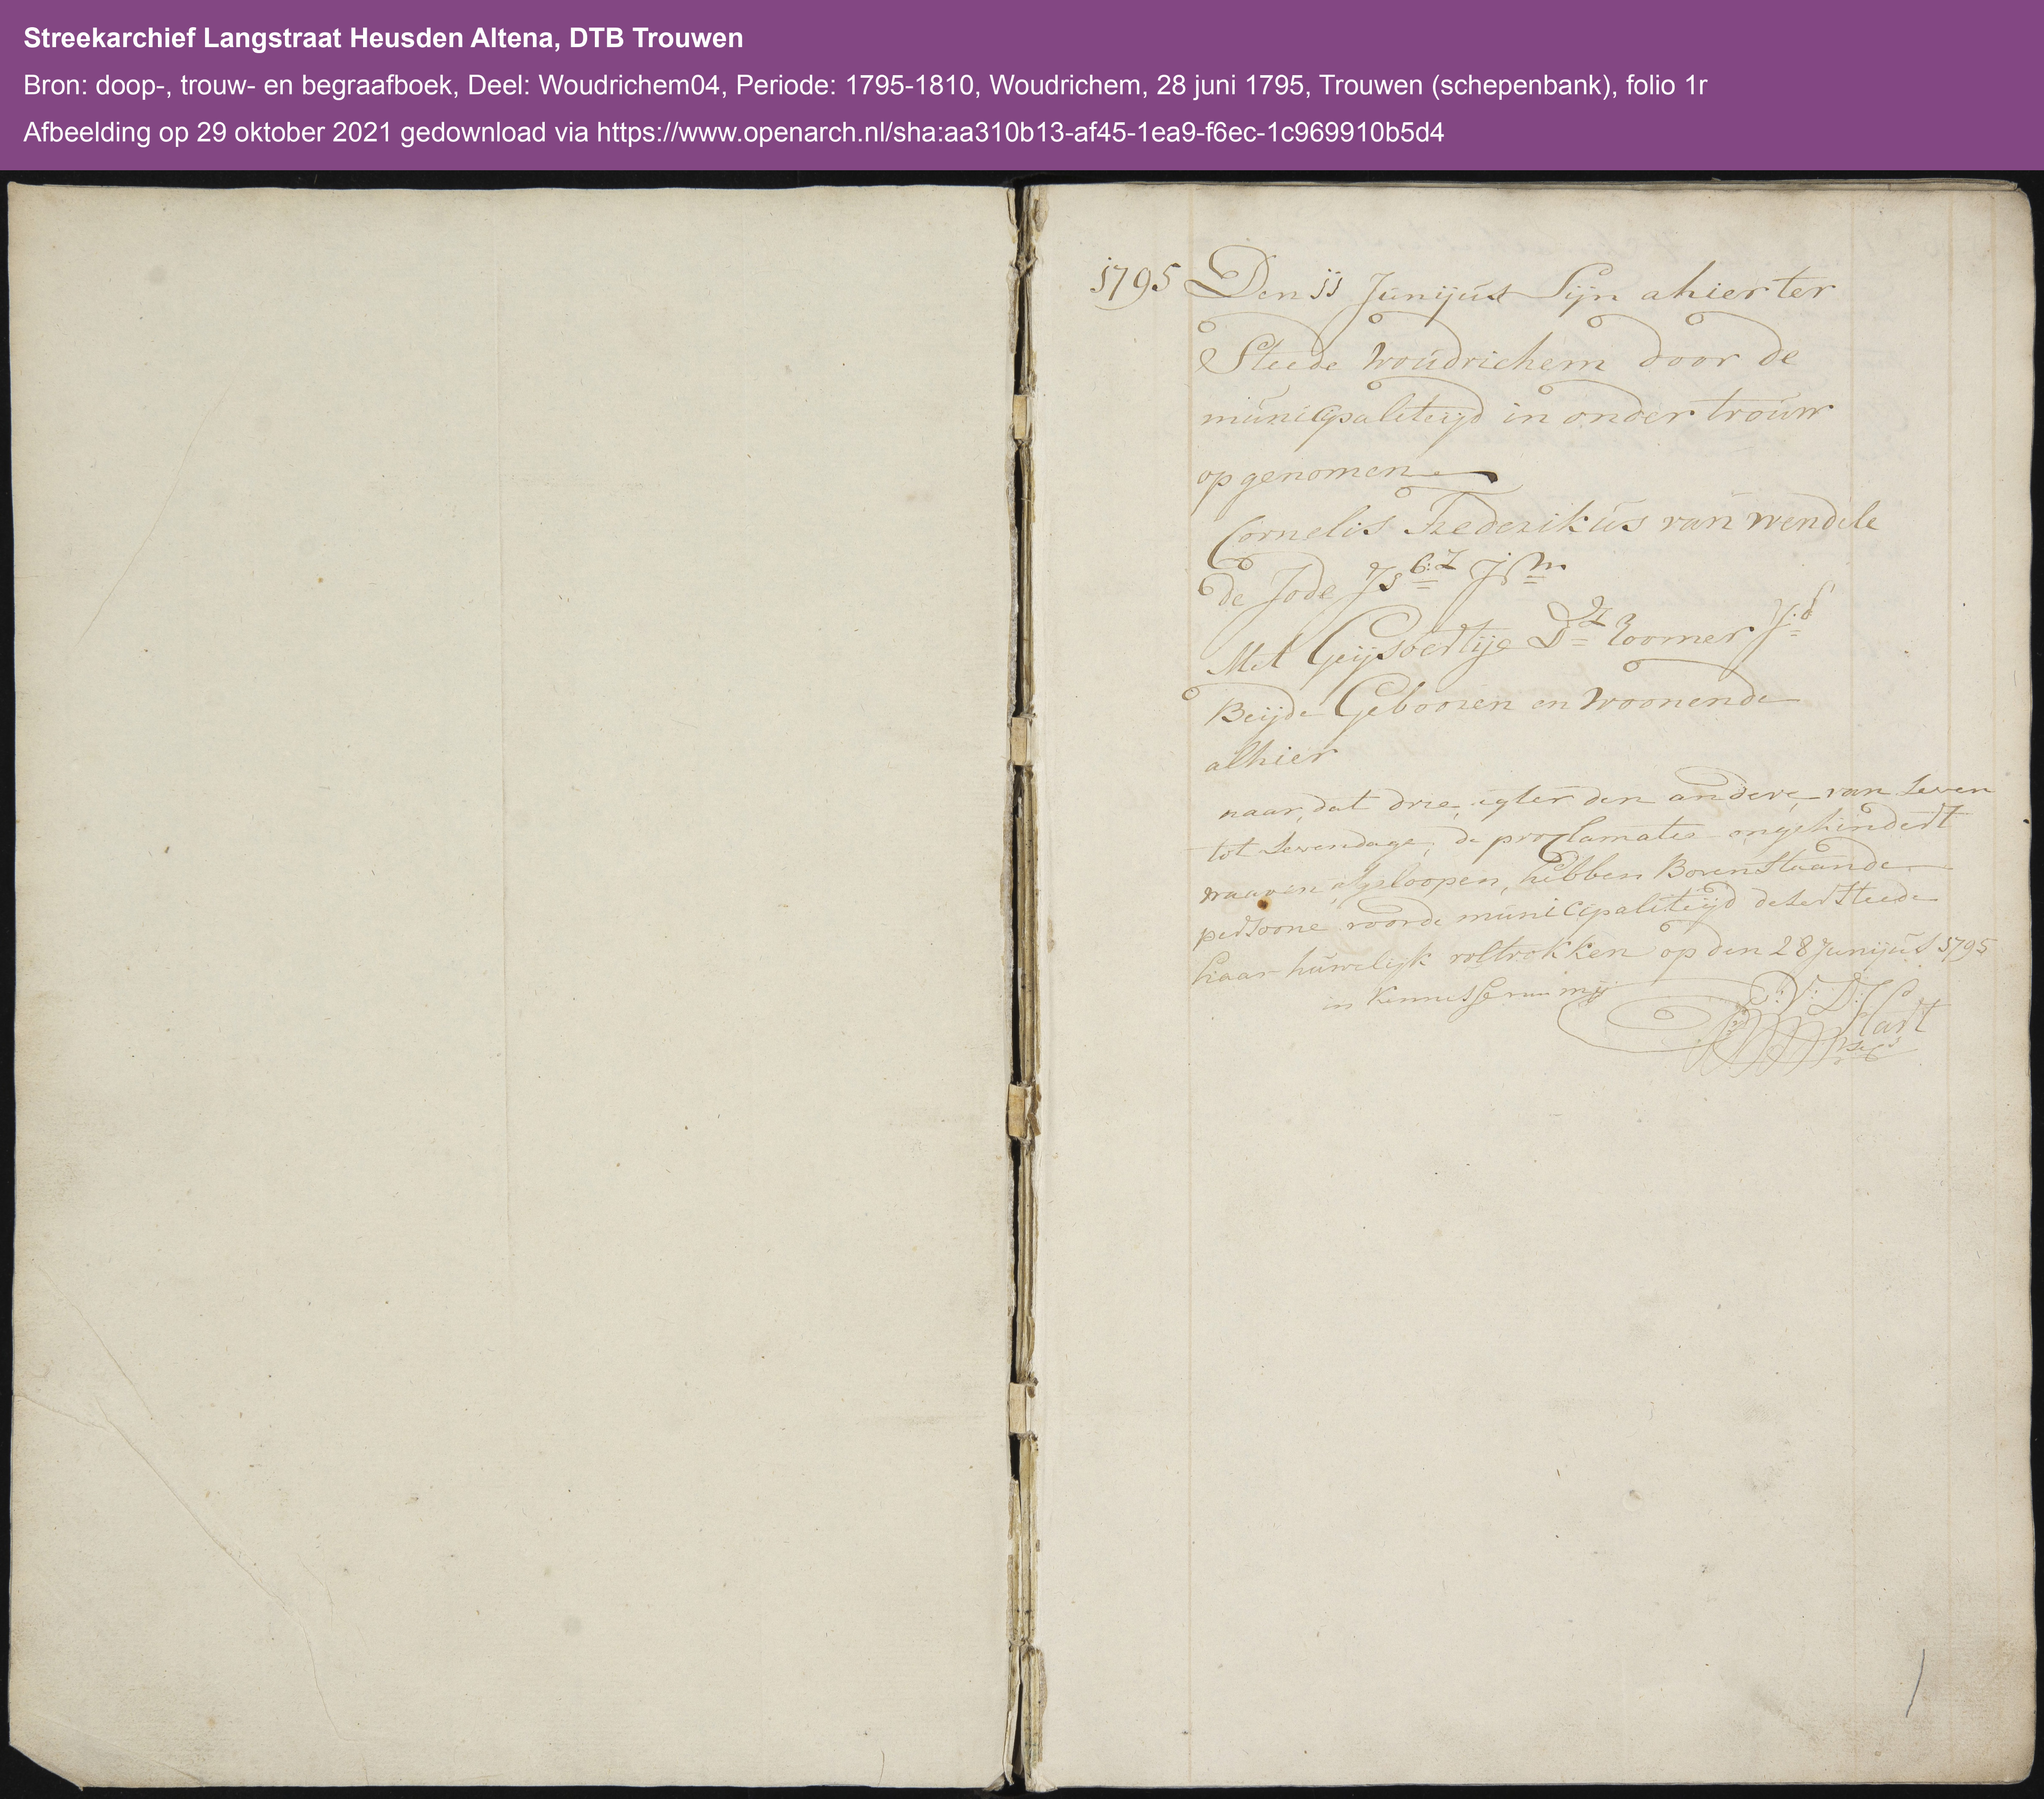 Streekarchief Langstraat Heusden Altena, DTB Trouwen
Bron: doop-, trouw- en begraafboek, Deel: Woudrichem04, Periode: 1795-1810, Woudrichem, 28 juni 1795, Trouwen (schepenbank), folio 1r
Afbeelding op 29 oktober 2021 gedownload via https://www.openarch.nl/sha:aa310b13-af45-1ea9-f6ec-1c969910b5d4
1795 Den 11 Junijus Sijn ahier ter
Steede woudrichem door de
municipaliteijd in onder trouw
op genomen
Cornelis Frederikus van wendele
de Jode Jm
Met Geijsbertije Dz Roomer J:d
Beijde Gebooren en woonende
alhier
naar dat drie agter den andere van Seven
tot Sevendage, de proclamaties ongehindert
waaren afgeloopen, hebben Boven Staande
persoone voor de municipaliteijd deser Steede
haar huwelijk voltrokken op den 28 Junijus 1795
in kennisse van mij
V: D: Hart
Secrs
1